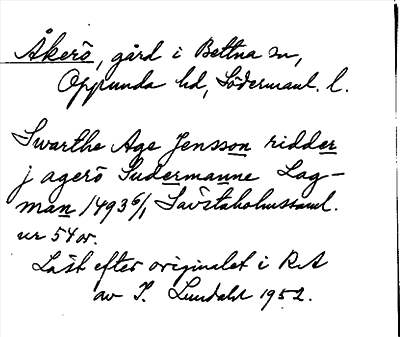 Åkerö, gård i Bettna sn,
Oppunda hd, Södermanl. l.
Swarthe Age Jensson ridder
j agerö Sudermanne Lag-
man 1493 6/1, Sävstaholmssaml.
nr 54 or.
Läst efter originalet i RA
av I. Lundahl 1952.